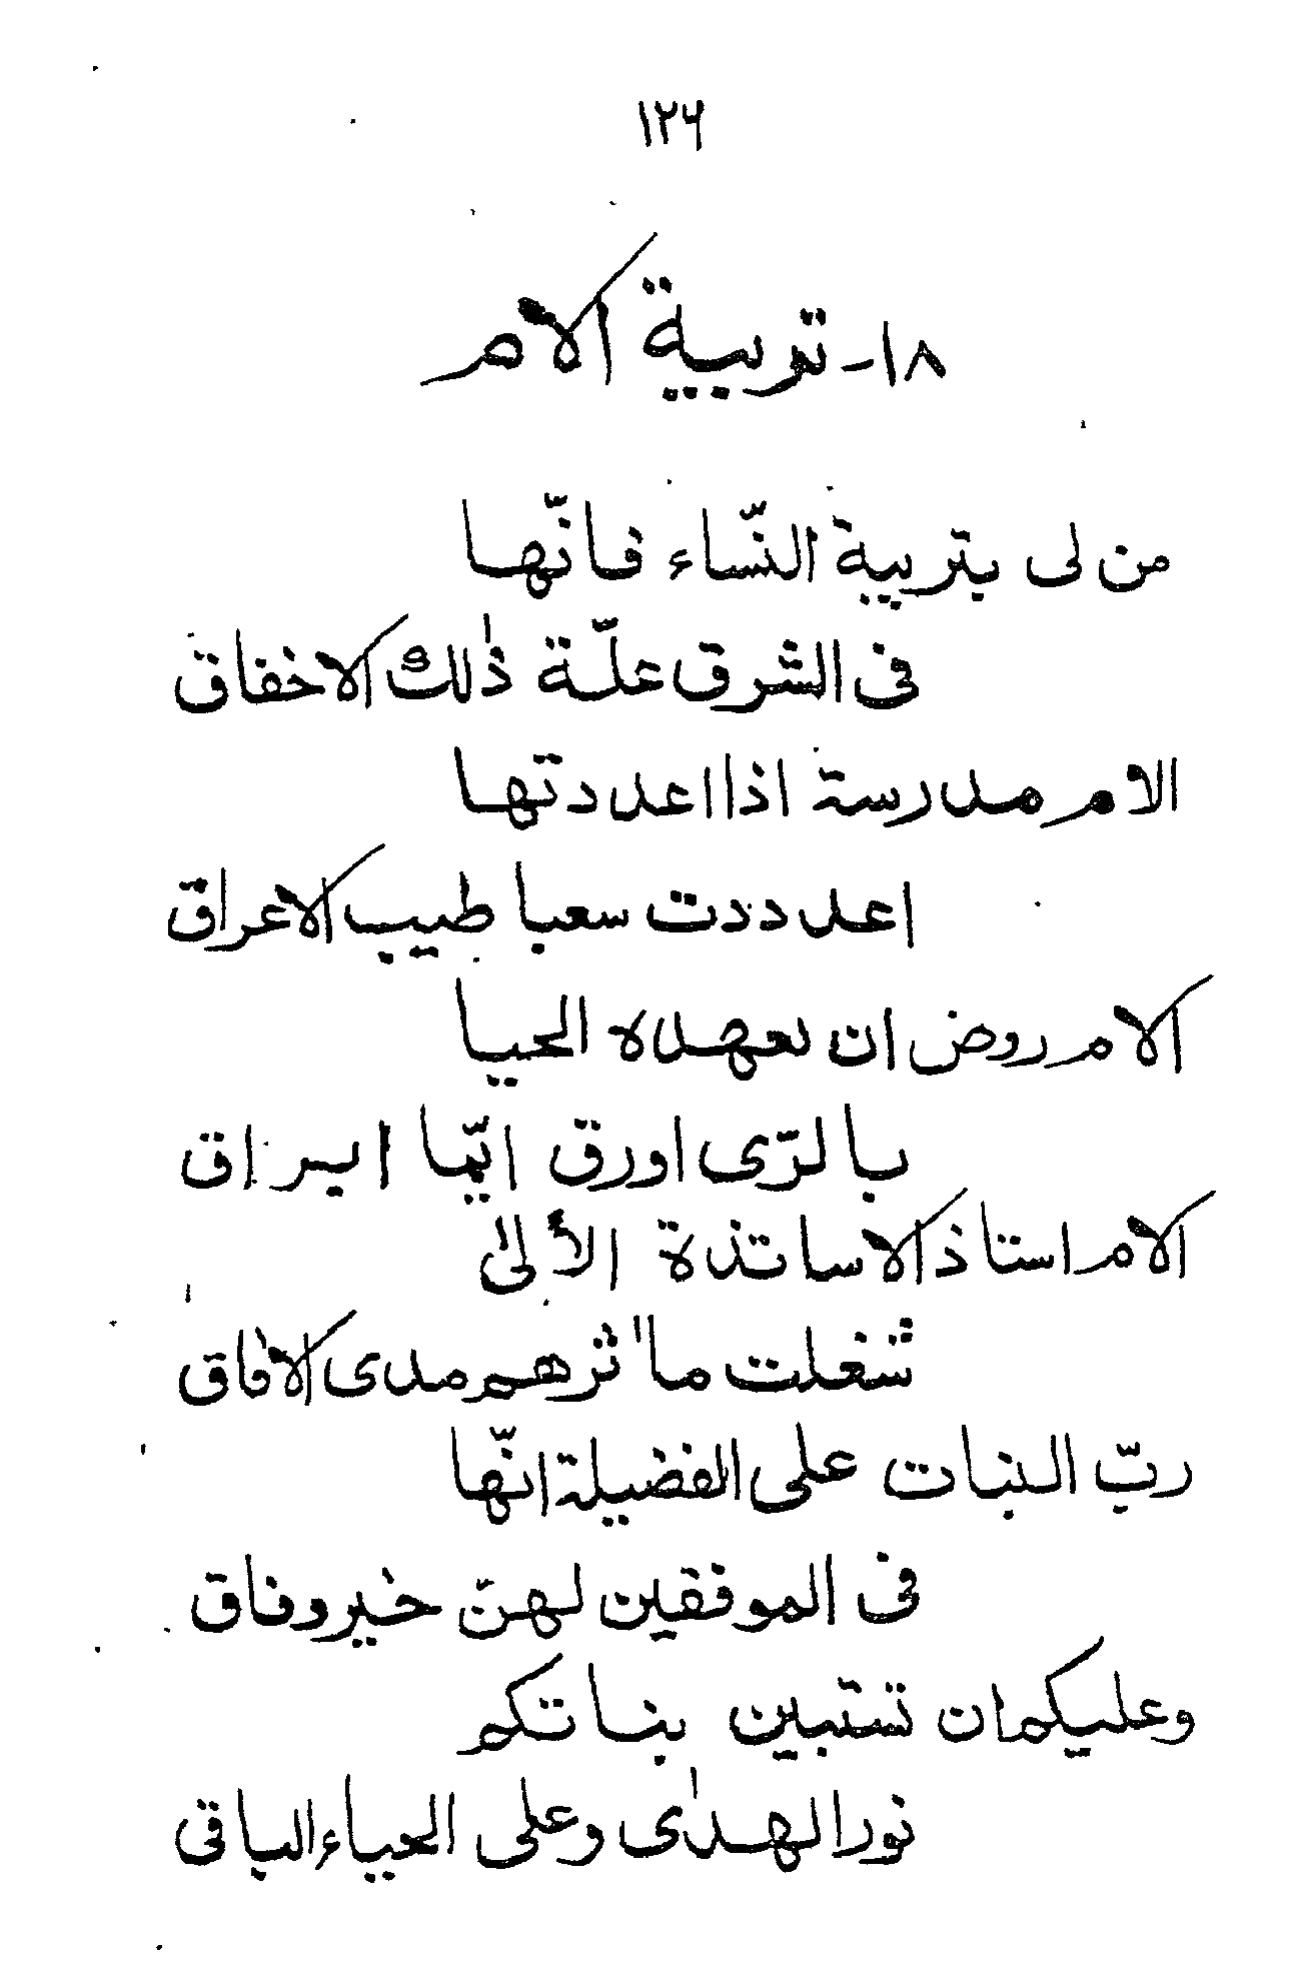 ١٢٦
١٨- تربية الام
من لى بتربية النّساء فانّها
فى الشرق علّة ذٰلك الاخفاق
الام مدرسة اذا اعددتها
اعددت سعبا طيب الاعراق
الام روض ان تعهده الحيا
بالرّى اورق ايّما ايراق
الام استاذ الاساتذة الألىٰ
شغلت مآثرهم مدى الاٰفاق
ربّ النبات على الفضيلة انّها
فى الموفقين لهنّ خير وفاق
وعليكم ان تستبين بناتكم
نور الهدٰى وعلى الحياء الباقى